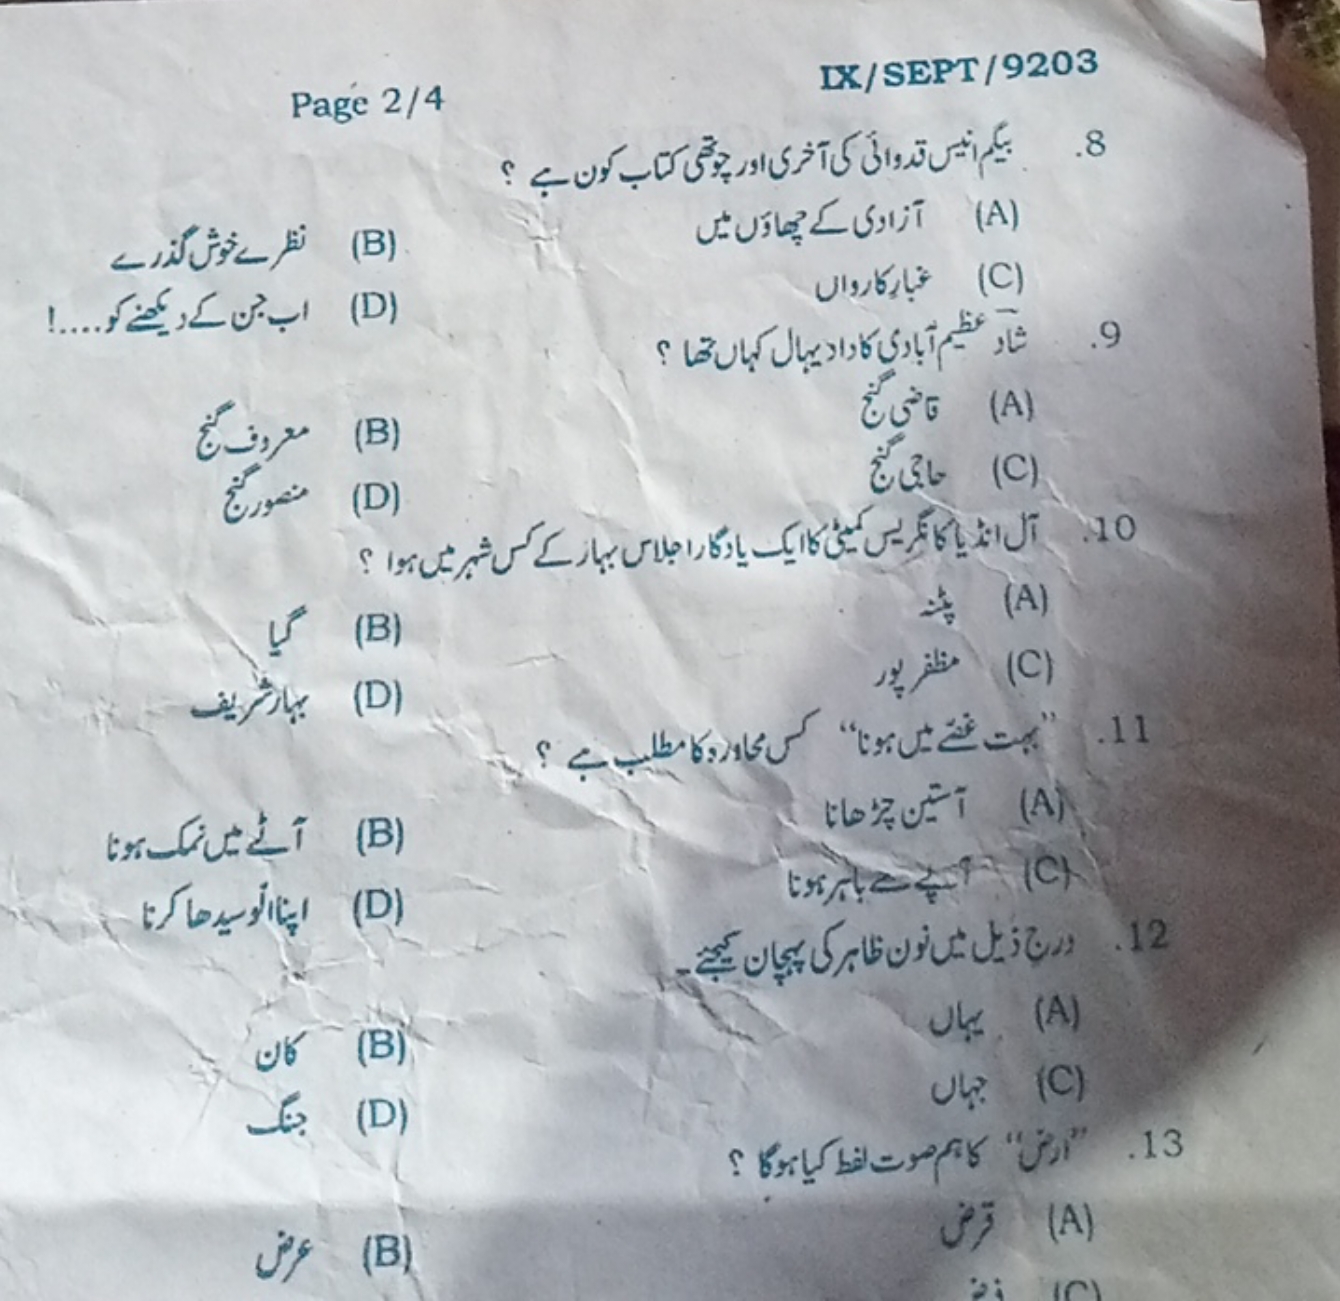 Page 2/4
IX/SEPT/9203
8. بیگم انیس قدوائی کی آخری اور چوتھی کتاب کون ہے ؟
(A) آزادی کے چھاؤں میں (B) نظرے خوش گذرے
(C) غبارِ کارواں (D) اب جن کے دیکھنے کو....!
9. شاد عظیم آبادی کا دادیہال کہاں تھا ؟
(A) قاضی گنج (B) معروف گنج
(C) حاجی گنج (D) منصور گنج
10. آل انڈیا کانگریس کمیٹی کا ایک یادگار اجلاس بہار کے کس شہر میں ہوا ؟
(A) پٹنہ (B) گیا
(C) مظفر پور (D) بہار شریف
11. ”بہت غصّے میں ہونا“ کس محاورہ کا مطلب ہے ؟
(A) آستین چڑھانا (B) آٹے میں نمک ہونا
(C) آپے سے باہر ہونا (D) اپنا الّو سیدھا کرنا
12. درج ذیل میں نون ظاہر کی پہچان کیجئے۔
(A) یہاں (B) کان
(C) جہاں (D) جنگ
13. ”ارض“ کا ہم صوت لفظ کیا ہوگا ؟
(A) قرض (B) عرض
(C)